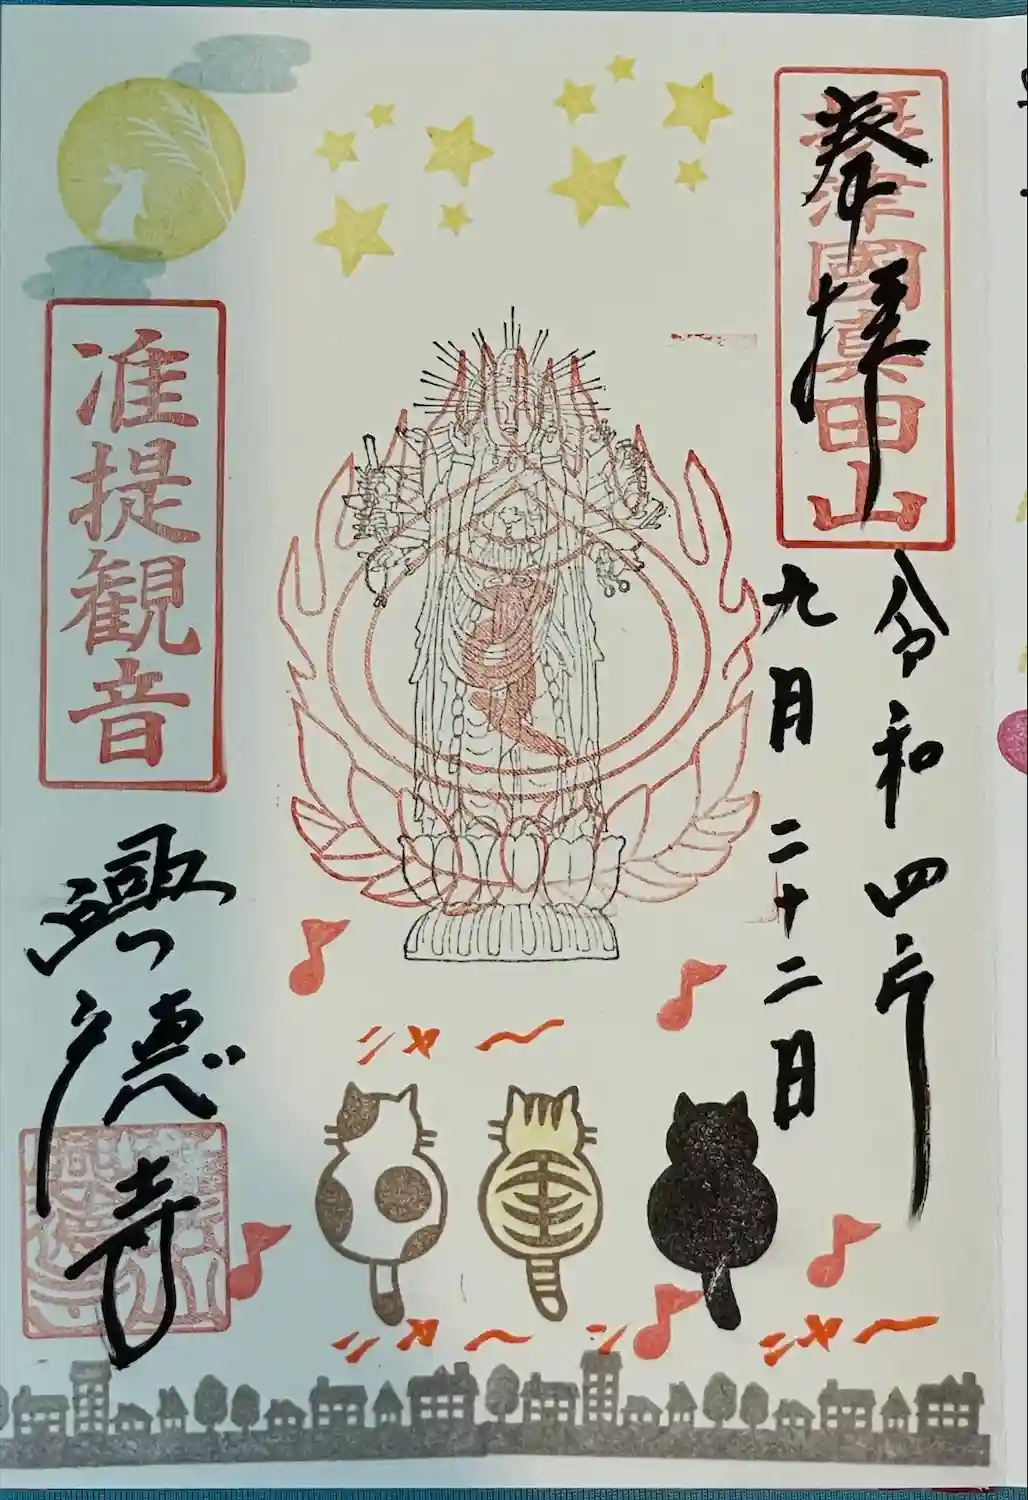 奉拝
摂津國真田山
令和四年
九月二十二日
准提観音
興徳寺
ニャ〜
ニャ〜
ニャ〜